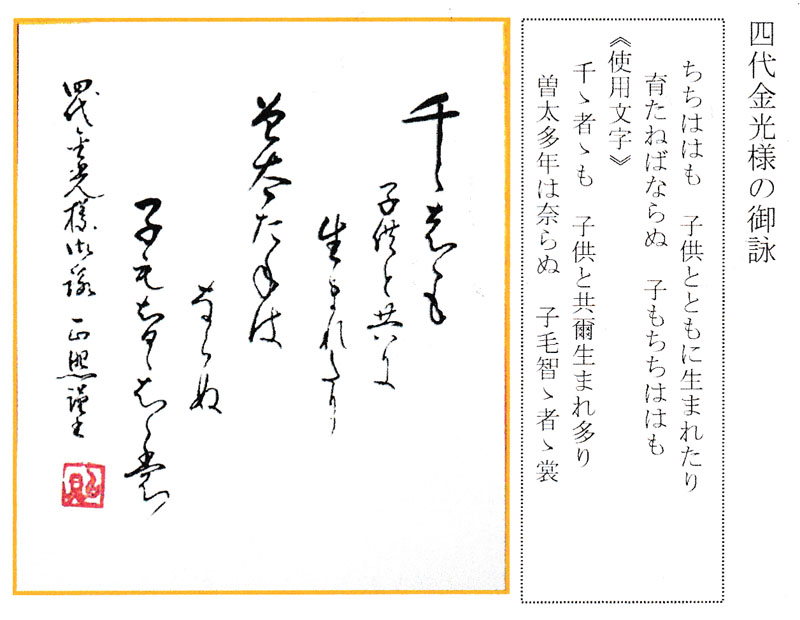 四代金光様の御詠
ちちははも　子供とともに生まれたり
育たねばならぬ　子もちちははも
《使用文字》
千ゝ者ゝも　子供と共爾生まれ多り
曽太多年は奈らぬ　子毛智ゝ者ゝ裳
千ゝ者ゝも
子供と共爾
生まれたり
曽太た年は
奈らぬ
子毛智ゝ者ゝ裳
四代金光様御詠　正照謹書